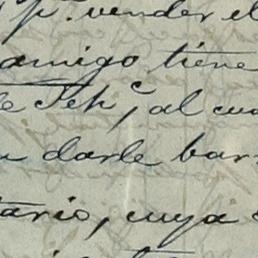 pª. vender el
amigo tiene
de Feb.º, al cua
darle bar
tario, cuya